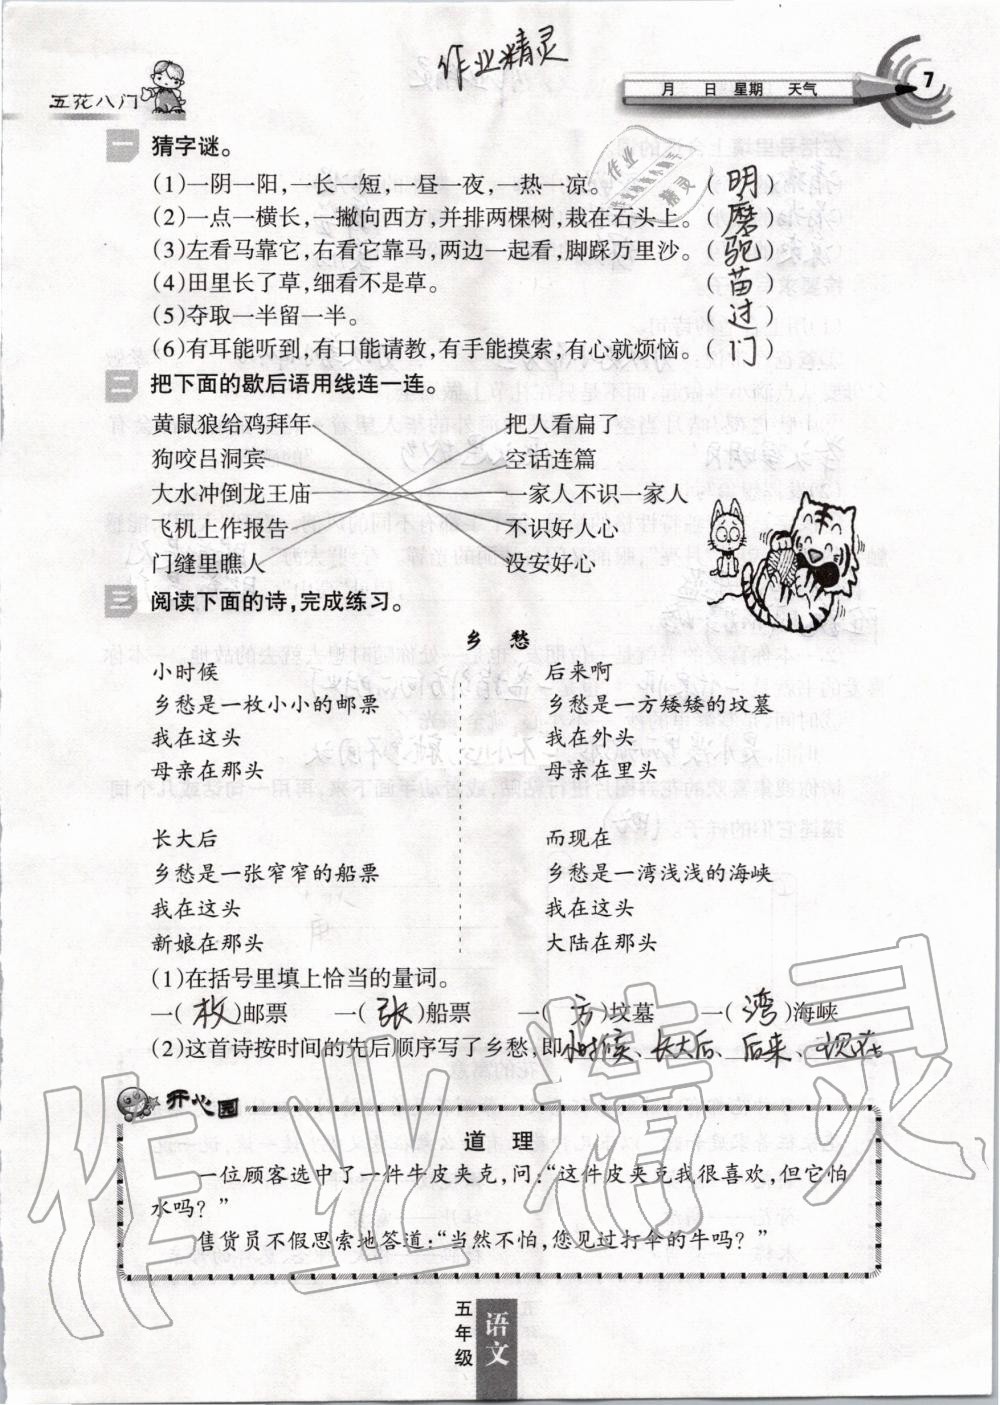 作业精灵
五花八门
月 日 星期 天气
7
一 猜字谜。
(1)一阴一阳,一长一短,一昼一夜,一热一凉。 (明)
(2)一点一横长,一撇向西方,并排两棵树,栽在石头上。(磨)
(3)左看马靠它,右看它靠马,两边一起看,脚踩万里沙。(驼)
(4)田里长了草,细看不是草。 (苗)
(5)夺取一半留一半。 (过)
(6)有耳能听到,有口能请教,有手能摸索,有心就烦恼。(门)
二 把下面的歇后语用线连一连。
黄鼠狼给鸡拜年 把人看扁了
狗咬吕洞宾 空话连篇
大水冲倒龙王庙 一家人不识一家人
飞机上作报告 不识好人心
门缝里瞧人 没安好心
三 阅读下面的诗,完成练习。
乡 愁
小时候
乡愁是一枚小小的邮票
我在这头
母亲在那头
长大后
乡愁是一张窄窄的船票
我在这头
新娘在那头
后来啊
乡愁是一方矮矮的坟墓
我在外头
母亲在里头
而现在
乡愁是一湾浅浅的海峡
我在这头
大陆在那头
(1)在括号里填上恰当的量词。
一(枚)邮票 一(张)船票 一(方)坟墓 一(湾)海峡
(2)这首诗按时间的先后顺序写了乡愁,即小时候、长大后、后来、现在
开心园
道 理
一位顾客选中了一件牛皮夹克,问:“这件皮夹克我很喜欢,但它怕
水吗?”
售货员不假思索地答道:“当然不怕,您见过打伞的牛吗?”
五年级
语文
作业精灵